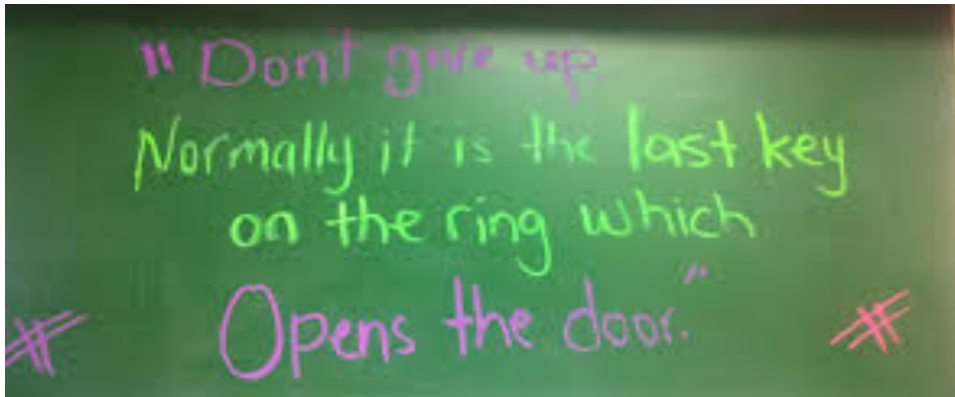 "Don't give up.
Normally it is the last key
on the ring which
Opens the door."